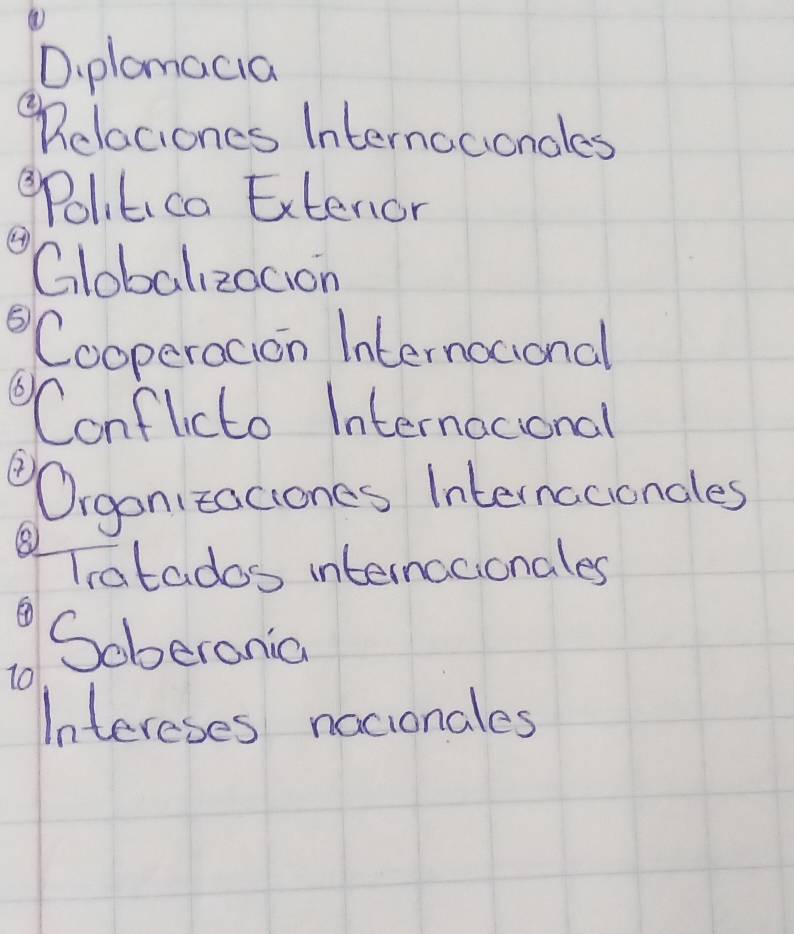 ① Diplomacia
② Relaciones Internacionales
③ Politica Exterior
④ Globalización
⑤ Cooperación Internacional
⑥ Conflicto Internacional
⑦ Organizaciones Internacionales
⑧ Tratados internacionales
⑨ Soberania
10 Intereses nacionales